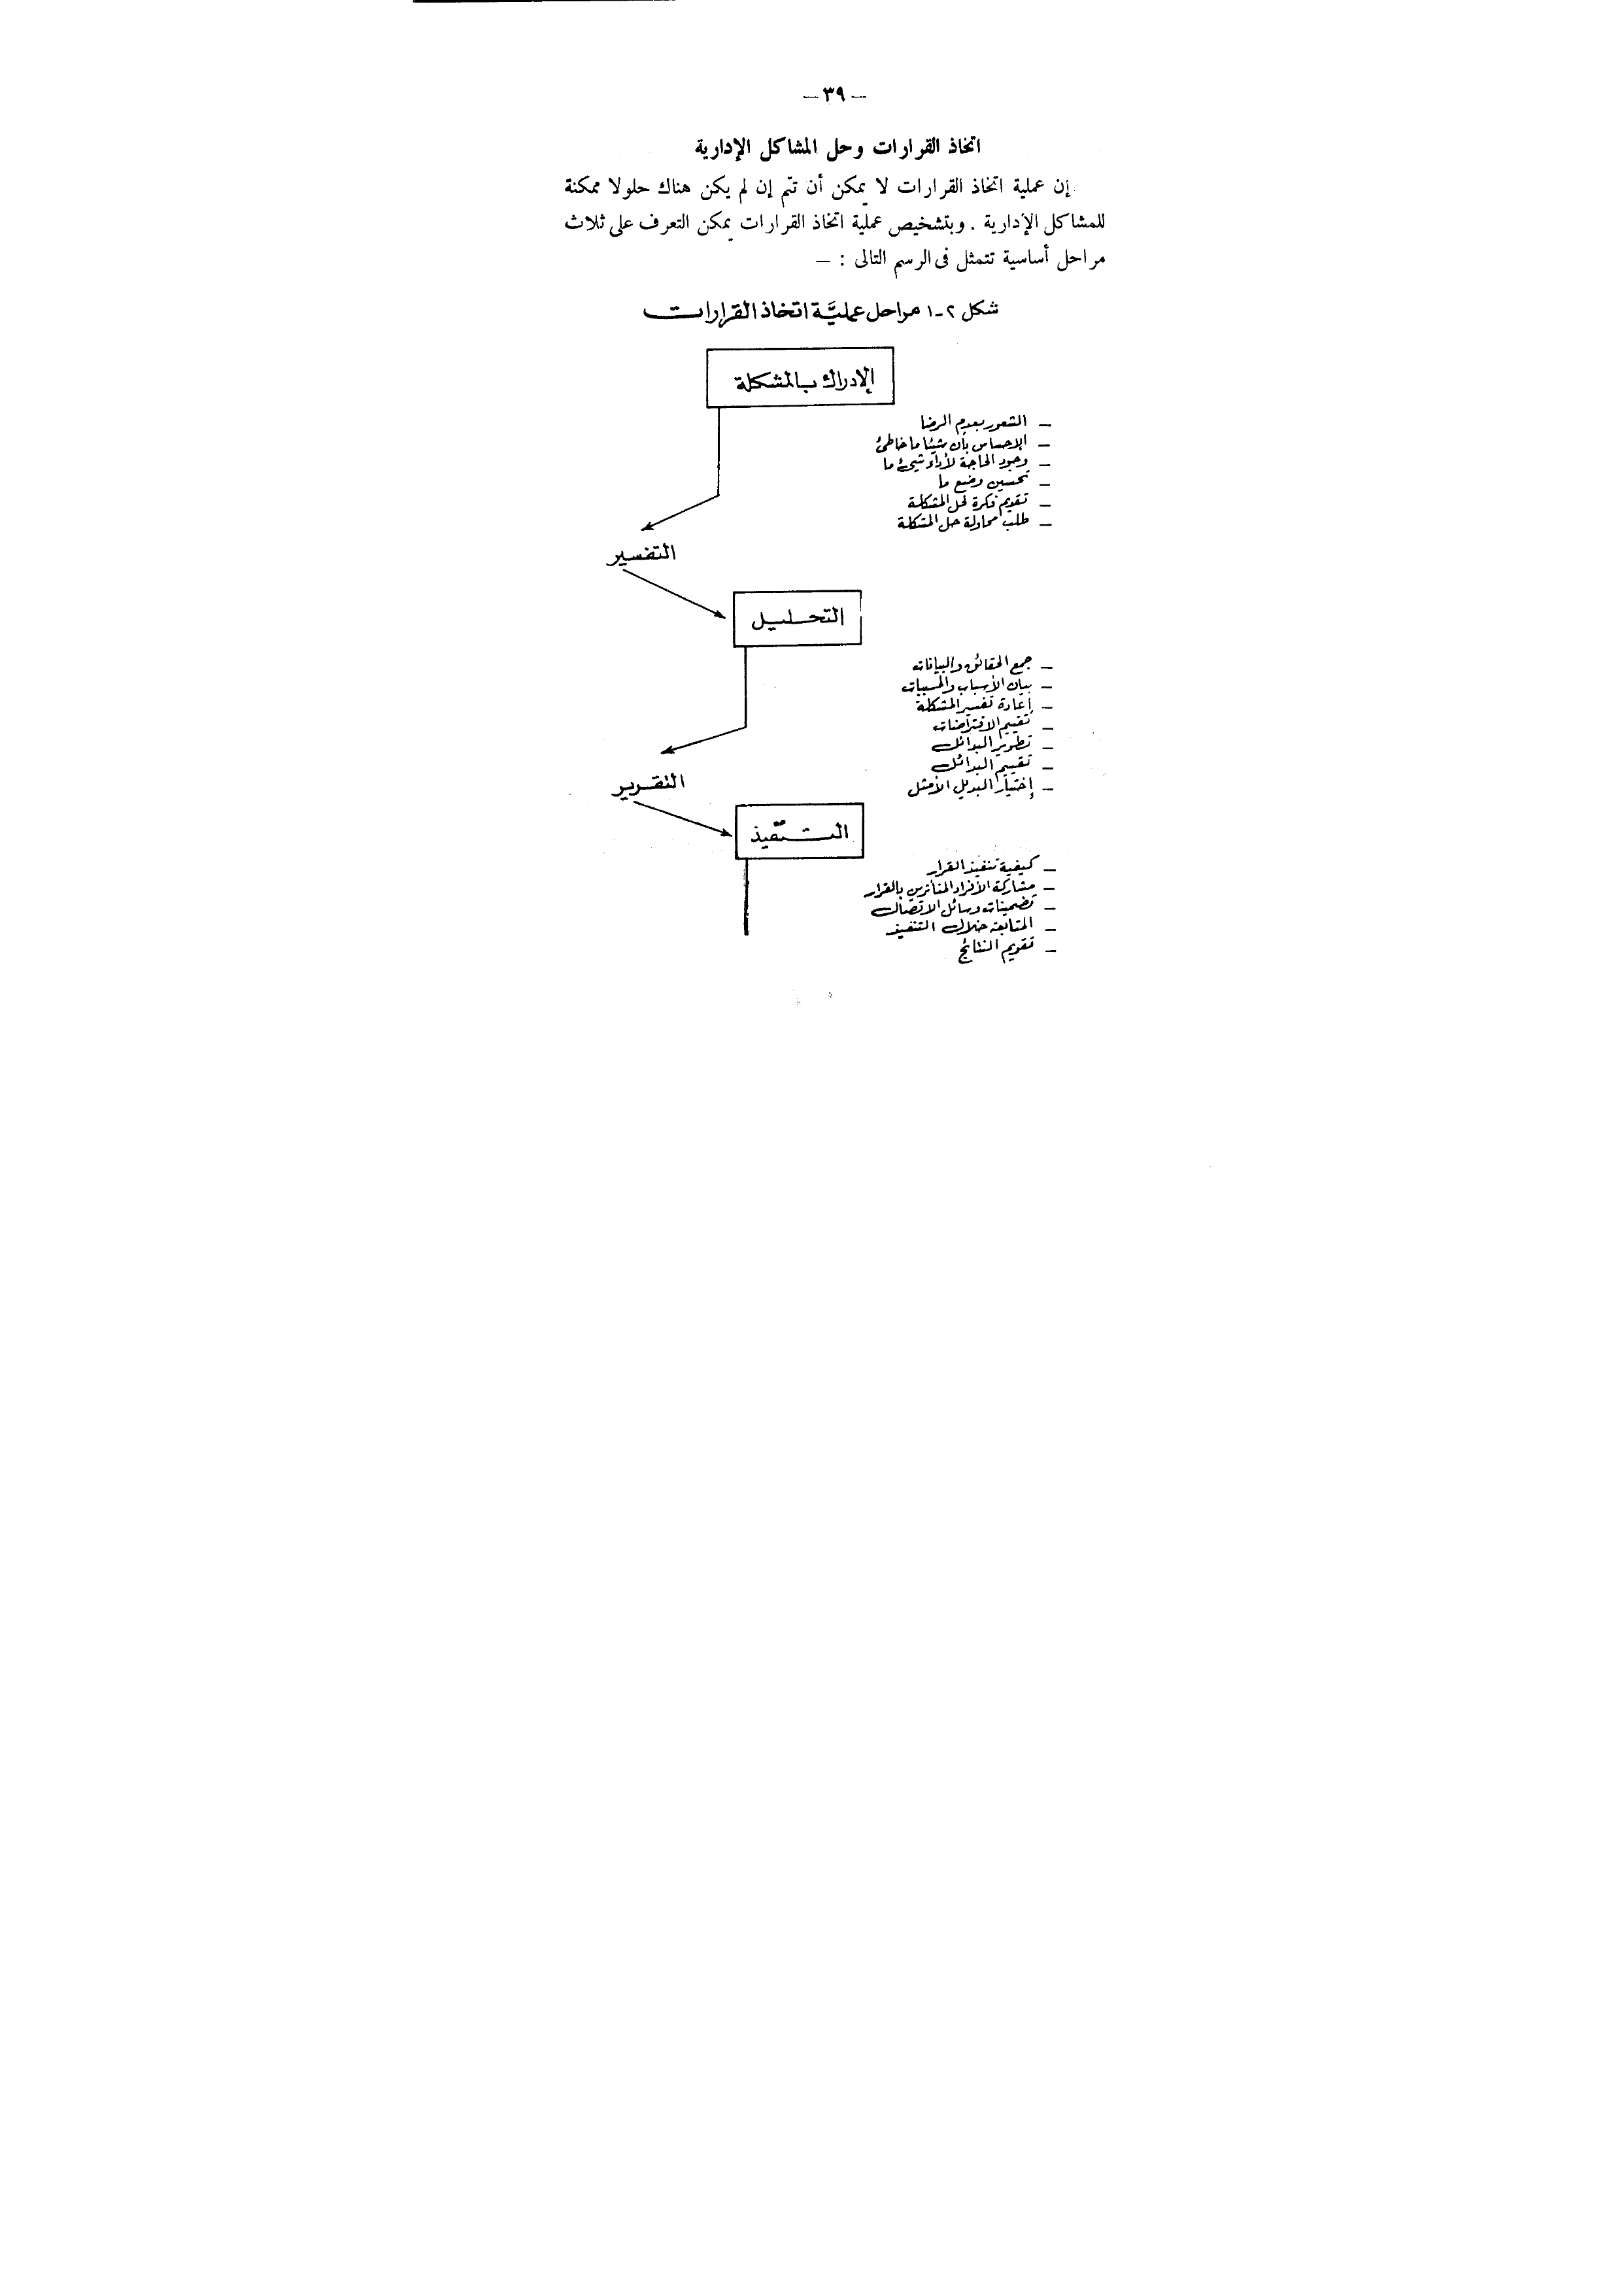 — ٣٩ —
اتخاذ القرارات وحل المشاكل الإدارية
إن عملية اتخاذ القرارات لا يمكن أن تتم إن لم يكن هناك حلولا ممكنة
للمشاكل الإدارية . وبتشخيص عملية اتخاذ القرارات يمكن التعرف على ثلاث
مراحل أساسية تتمثل فى الرسم التالى : —
شكل ٢-١ مراحل عمليَّة اتخاذ القرارات
الإدراك بالمشكلة
— الشعور بعدم الرضا
— الإحساس بأن شيئا ما خاطئ
— وجود الحاجة لأداء شيئ ما
— تحسين وضع ما
— تقويم فكرة لحل المشكلة
— طلب محاولة حل المشكلة
التفسير
التحليل
— جمع الحقائق والبيانات
— بيان الأسباب والمسببات
— إعادة تفسير المشكلة
— تقييم الافتراضات
— تطوير البدائل
— تقييم البدائل
— إختيار البديل الأمثل
التقرير
التنفيذ
— كيفية تنفيذ القرار
— مشاركة الأفراد المتأثرين بالقرار
— تضمينات وسائل الاتصال
— المتابعة خلال التنفيذ
— تقويم النتائج